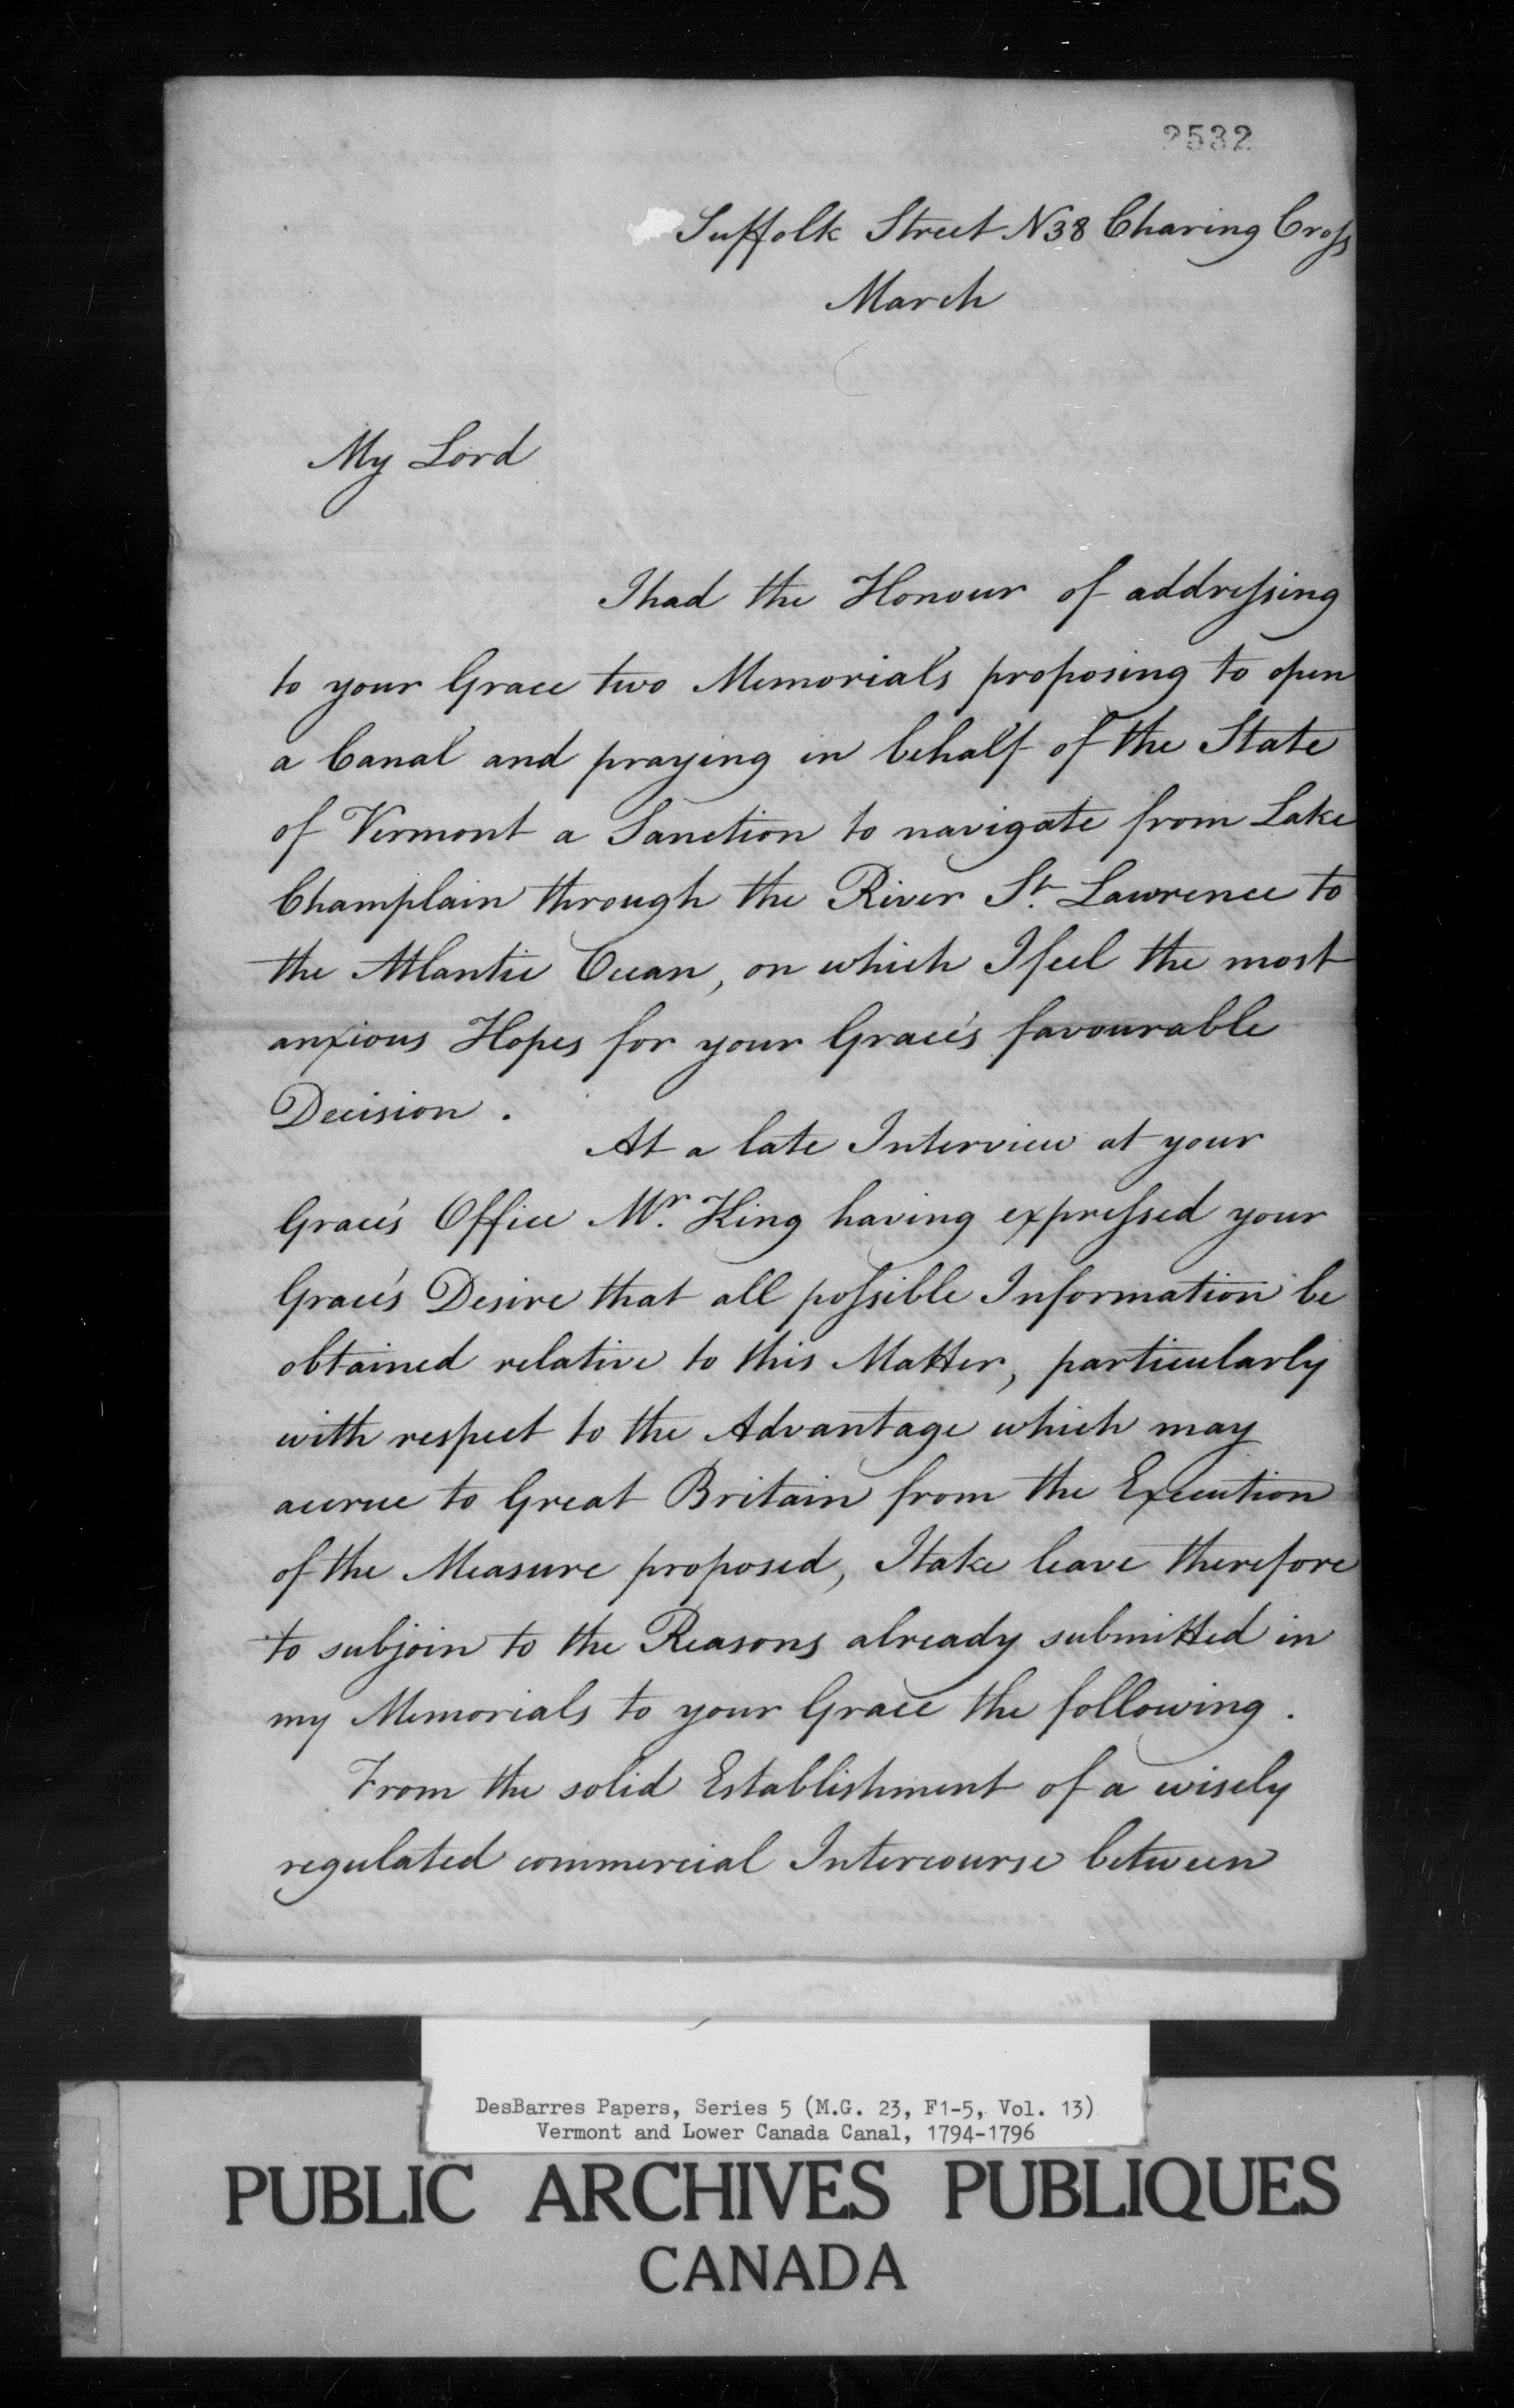 2532
Suffolk Street N38 Charing Croſs
March
My Lord
I had the Honour of addreſsing
to your Grace two Memorials proposing to open
a Canal and praying in behalf of the State
of Vermont a Sanction to navigate from Lake
Champlain through the River St. Lawrence to
the Atlantic Ocean, on which I feel the most
anxious Hopes for your Grace's favourable
Decision.
At a late Interview at your
Grace's Office Mr. King having expreſsed your
Grace's Desire that all poſsible Information be
obtained relative to this Matter, particularly
with respect to the Advantage which may
accrue to Great Britain from the Execution
of the Measure proposed, I take leave therefore
to subjoin to the Reasons already submitted in
my Memorials to your Grace the following.
From the solid Establishment of a wisely
regulated commercial Intercourse between
DesBarres Papers, Series 5 (M.G. 23, F1-5, Vol. 13)
Vermont and Lower Canada Canal, 1794-1796
PUBLIC ARCHIVES PUBLIQUES
CANADA